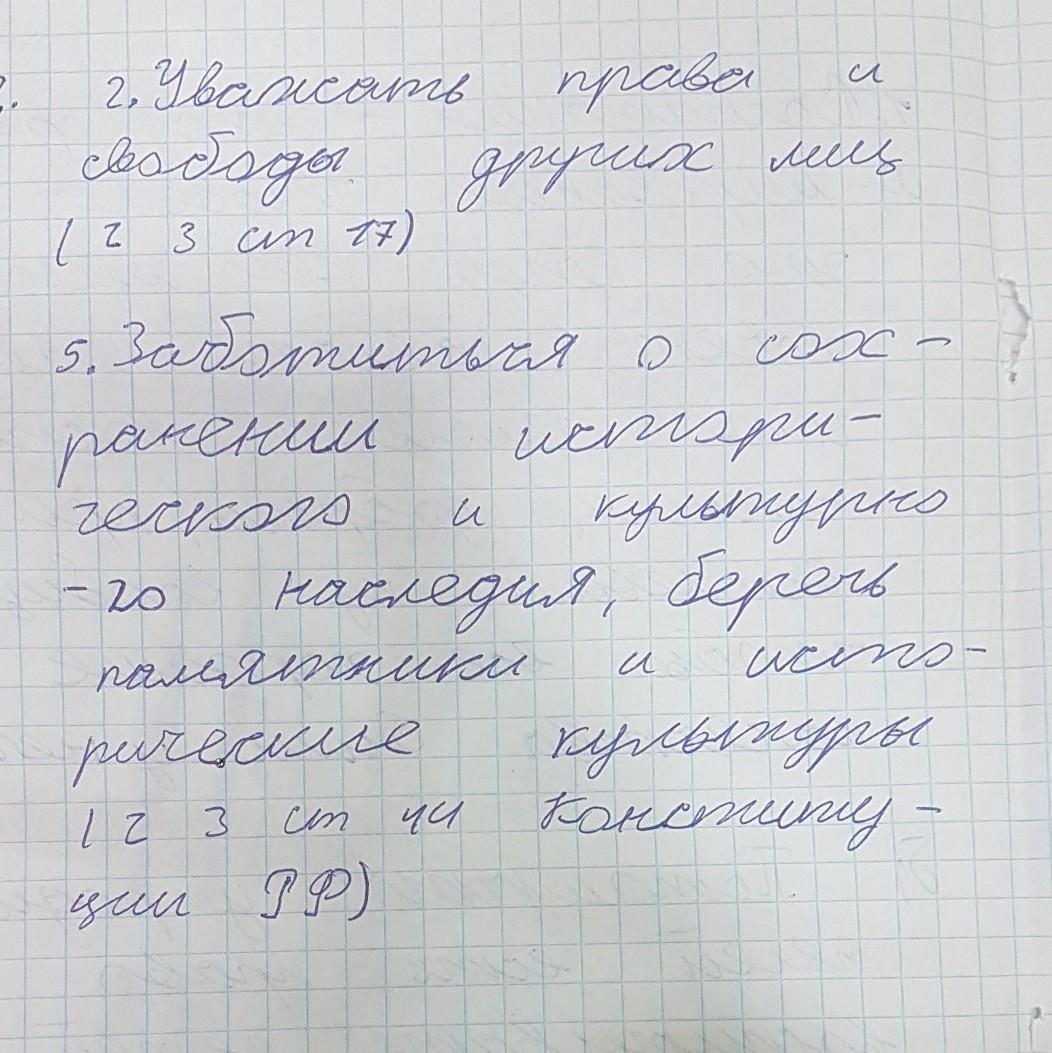 2. Уважать права и
свободы других лиц
( ч 3 ст 17)
5. Заботиться о сох-
ранении истори-
ческого и культурно
-го наследия, беречь
памятники и исто-
рические культуры
( ч 3 ст 44 Конститу-
ции РФ)